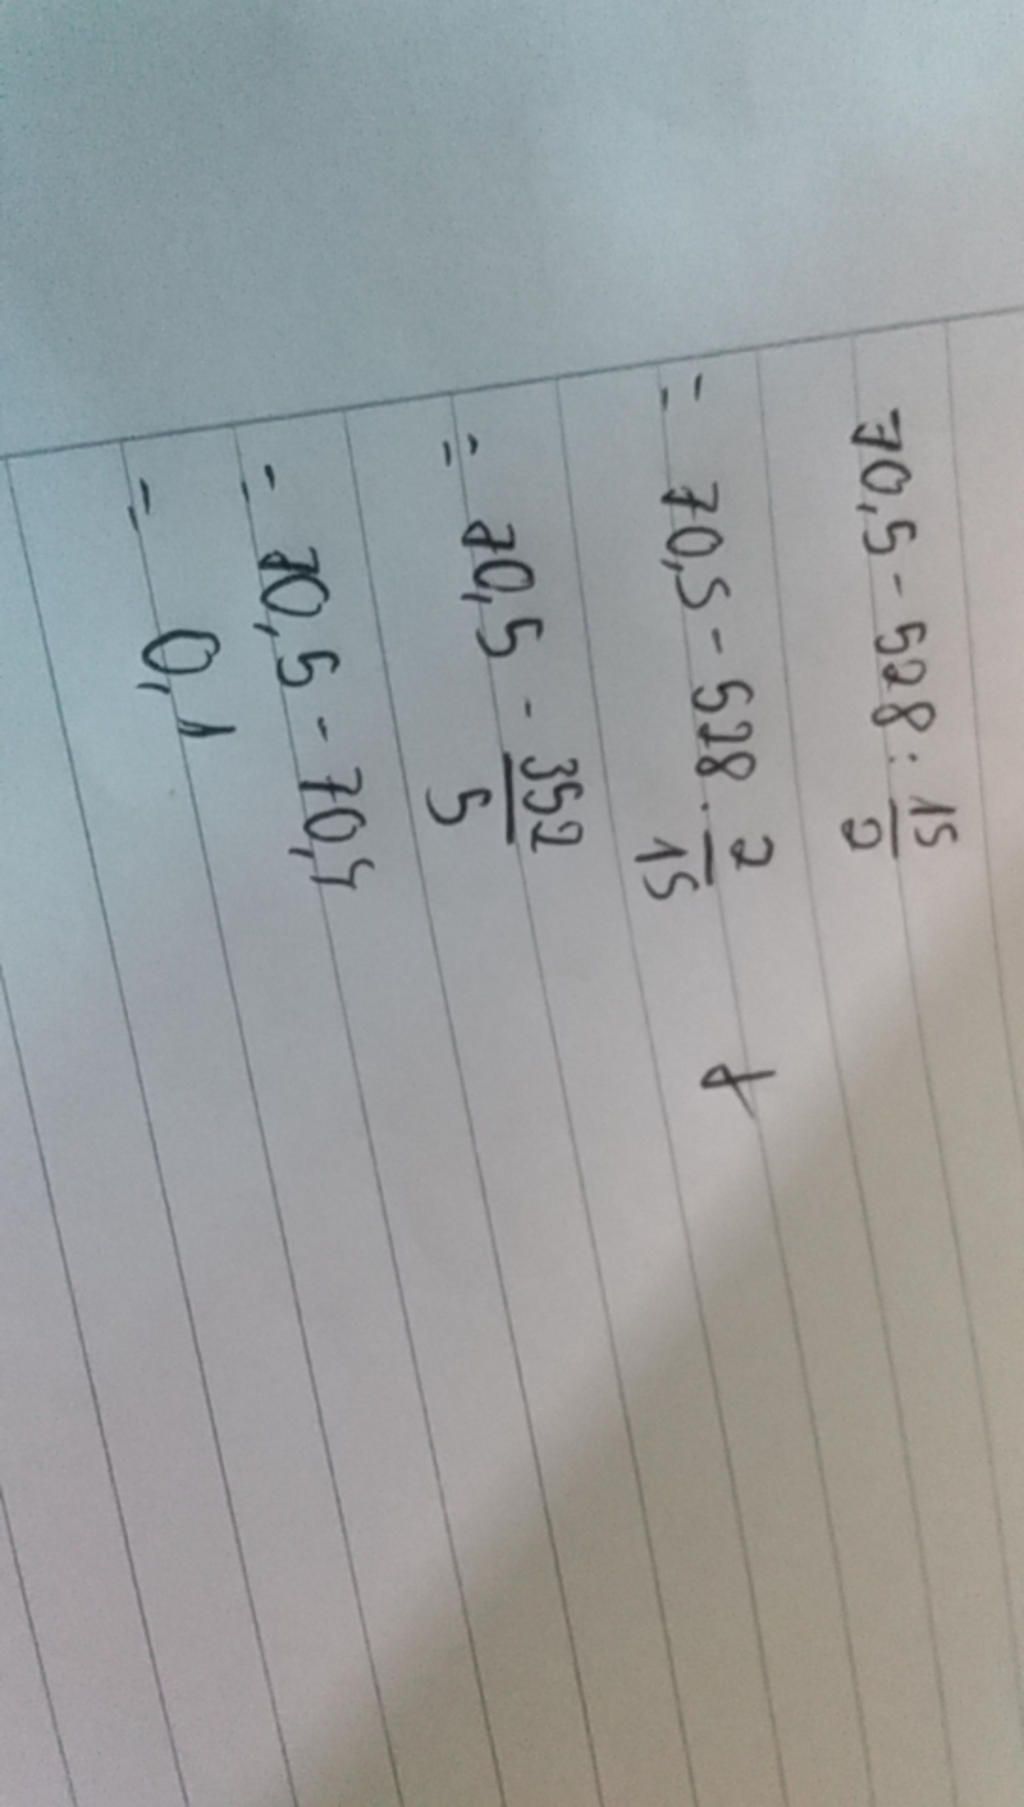 70,5 - 528 : 15/2
= 70,5 - 528 . 2/15
= 70,5 - 352/5
= 70,5 - 70,4
= 0,1